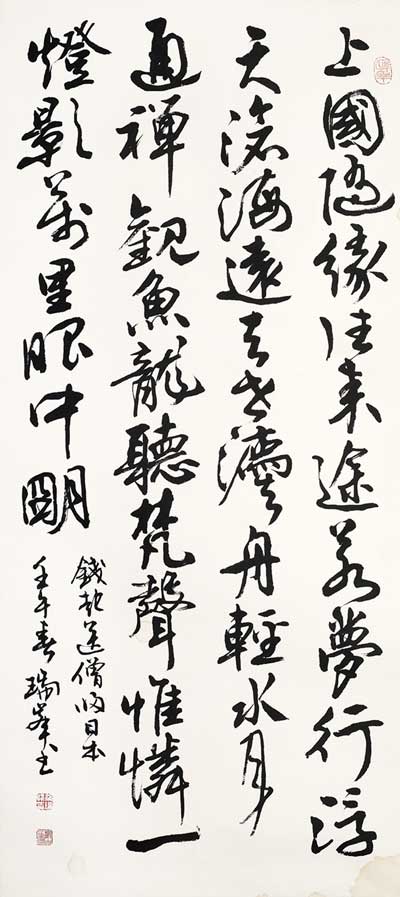 上國隨緣住來途若夢行浮
天滄海遠去世濤舟輕水月
通禪觀魚龍聽梵聲惟憐一
燈影萬里眼中明
錢起送僧歸日本
壬午春瑞峯书